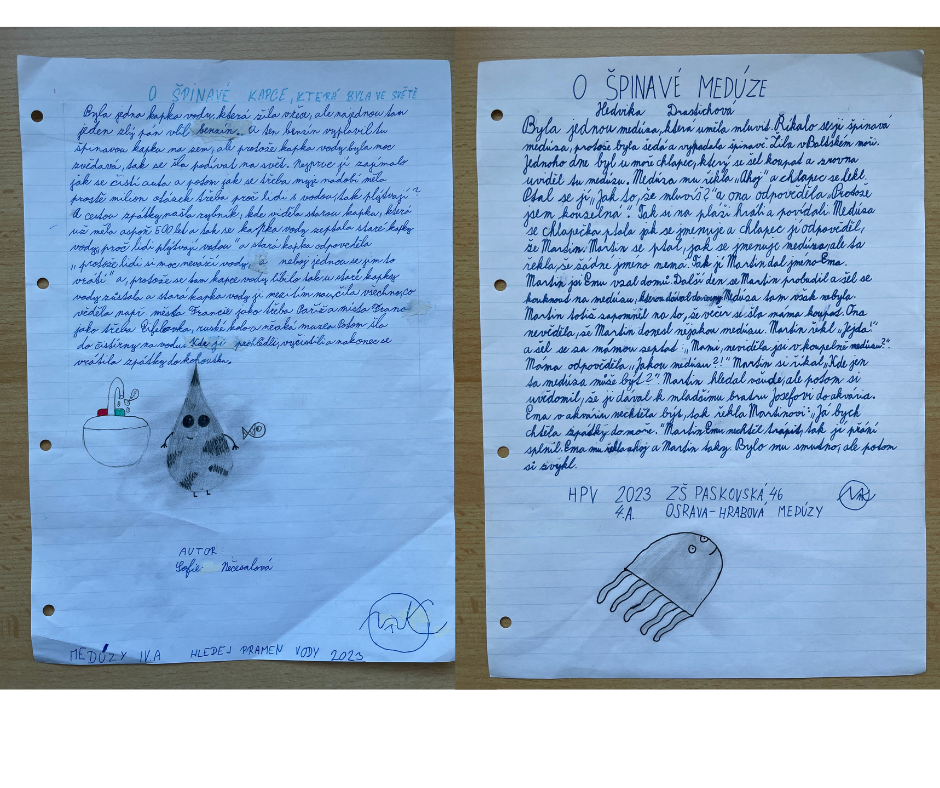 O ŠPINAVÉ KAPCE, KTERÁ BYLA VE SVĚTĚ
Byla jedna kapka vody, která žila v řece, ale najednou tam
jeden zlý pán vlil benzín. A ten benzín vyplavil tu
špinavou kapku na zem, ale protože kapka vody byla moc
zvědavá, tak se šla podívat na svět. Nejprve ji zajímalo
jak se čistí auta a potom jak se třeba myje nádobí měla
prostě milion otázek třeba proč lidi s vodou tak plýtvají?
A cestou zpátky našla rybník, kde viděla starou kapku, která
už měla aspoň 500 let a tak se kapka vody zeptala staré kapky
vody, proč lidi plýtvají vodou" a stará kapka odpověděla
„protože lidi si moc neváží vody, a neboj jednou se jim to
vrátí" a, protože se tam kapce vody líbilo tak u staré kapky
vody zůstala a stará kapka vody ji mezitím naučila všechno, co
věděla např. města Francie jako třeba Paříž a místa
jako třeba Eifelovka, ruské kolo a nějaká muzea. Potom šla
do čistírny na vodu. Kde ji prohlédli, vyčistili a nakonec se
vrátila zpátky do kohoutku.
AUTOR
Sofie Nečesalová
MEDÚZY IV.A HLEDEJ PRAMEN VODY 2023
O ŠPINAVÉ MEDÚZE
Hedvika Drastichová
Byla jednou medúza, která uměla mluvit. Říkalo se jí špinavá
medúza, protože byla šedá a vypadala špinavě. Žila v Baltském moři.
Jednoho dne byl u moře chlapec, který se šel koupat a zrovna
uviděl tu medúzu. Medúza mu řekla „Ahoj" a chlapec se lekl.
Ptal se jí „Jak to, že mluvíš?" a ona odpověděla „Protože
jsem kouzelná". Tak si na pláži hráli a povídali. Medúza
se chlapečka ptala jak se jmenuje a chlapec jí odpověděl,
že Martin. Martin se ptal, jak se jmenuje medúza, ale ta
řekla, že žádné jméno nemá. Tak jí Martin dal jméno Ema.
Martin si Emu vzal domů. Další den se Martin probudil a šel se
kouknout na medúzu, Medúza tam však nebyla.
Martin totiž zapomněl na to, že večer si šla máma koupat. Ona
nevěděla, že Martin donesl nějakou medúzu. Martin řekl „Jejda!"
a šel se za mámou zeptat: „Mami, neviděla jsi v koupelně medúzu?"
Máma odpověděla „Jakou medúzu?!" Martin si říkal „Kde jen
ta medúza může být?" Martin hledal všude, ale potom si
uvědomil, že ji dával k mladšímu bratru Josefovi do akvária.
Ema v akváriu nechtěla být, tak řekla Martinovi: „Já bych
chtěla zpátky do moře." Martin Emu nechtěl trápit, tak jí přání
splnil. Ema mu řekla ahoj a Martin taky. Bylo mu smutno, ale potom
si zvykl.
HPV 2023 ZŠ PASKOVSKÁ 46
4.A. OSRAVA-HRABOVÁ MEDÚZY